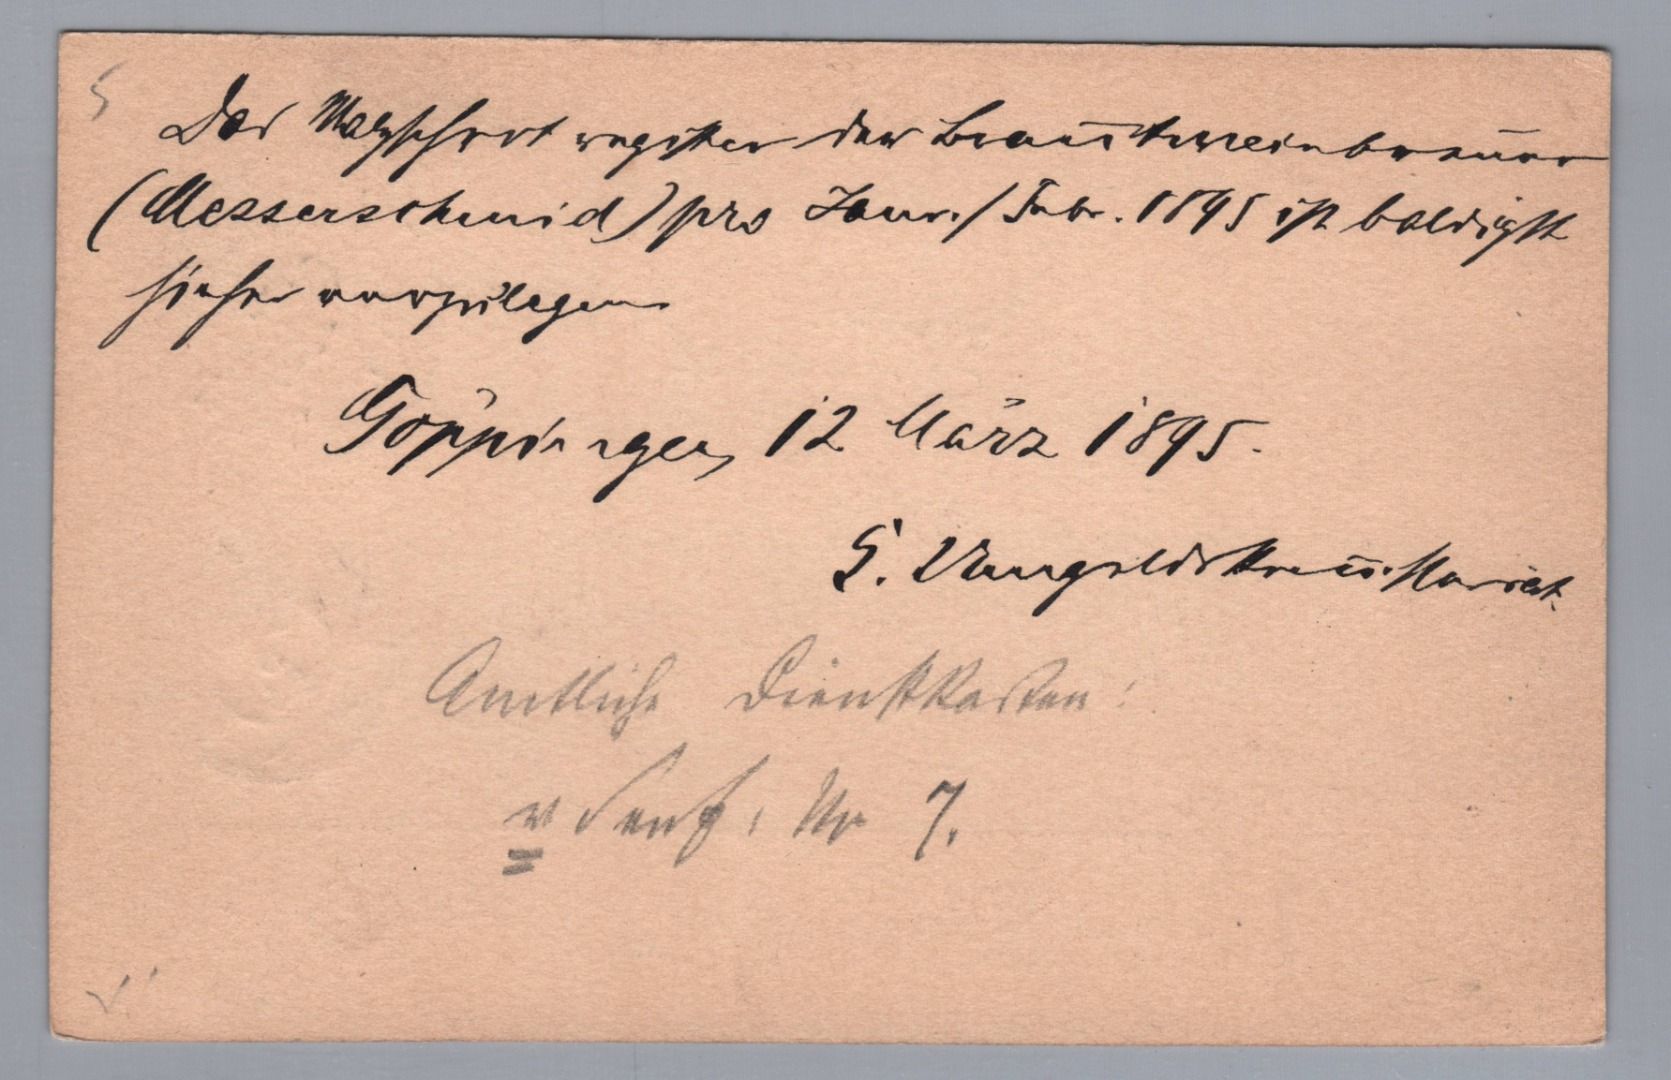 Das Malzschrotregister der Brantweinbrenner
(Messerschmid) pro Janr./Febr. 1895 ist baldigst
hieher vorzulegen
Göppingen, 12 März 1895.
K. Umgeldskommissariat.
Amtliche Dienstkarten!
Nr 7.